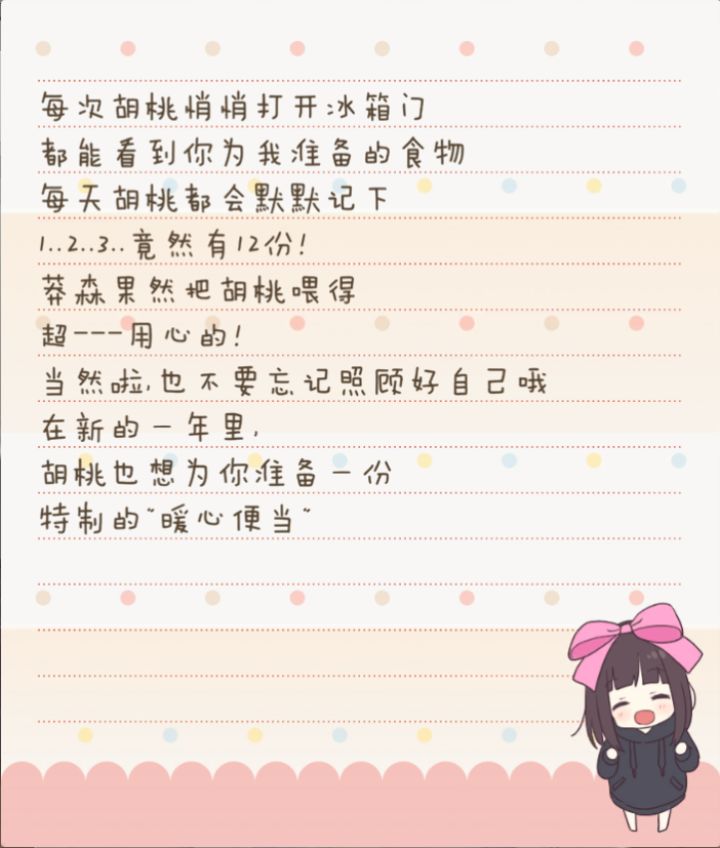 每次胡桃悄悄打开冰箱门
都能看到你为我准备的食物
每天胡桃都会默默记下
1..2..3..竟然有12份!
莽森果然把胡桃喂得
超---用心的!
当然啦,也不要忘记照顾好自己哦
在新的一年里,
胡桃也想为你准备一份
特制的~暖心便当~